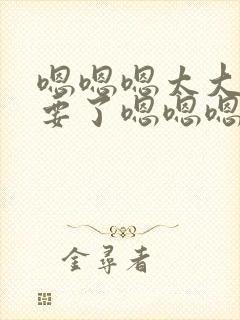 嗯嗯嗯太大
要了嗯嗯嗯
金尋者